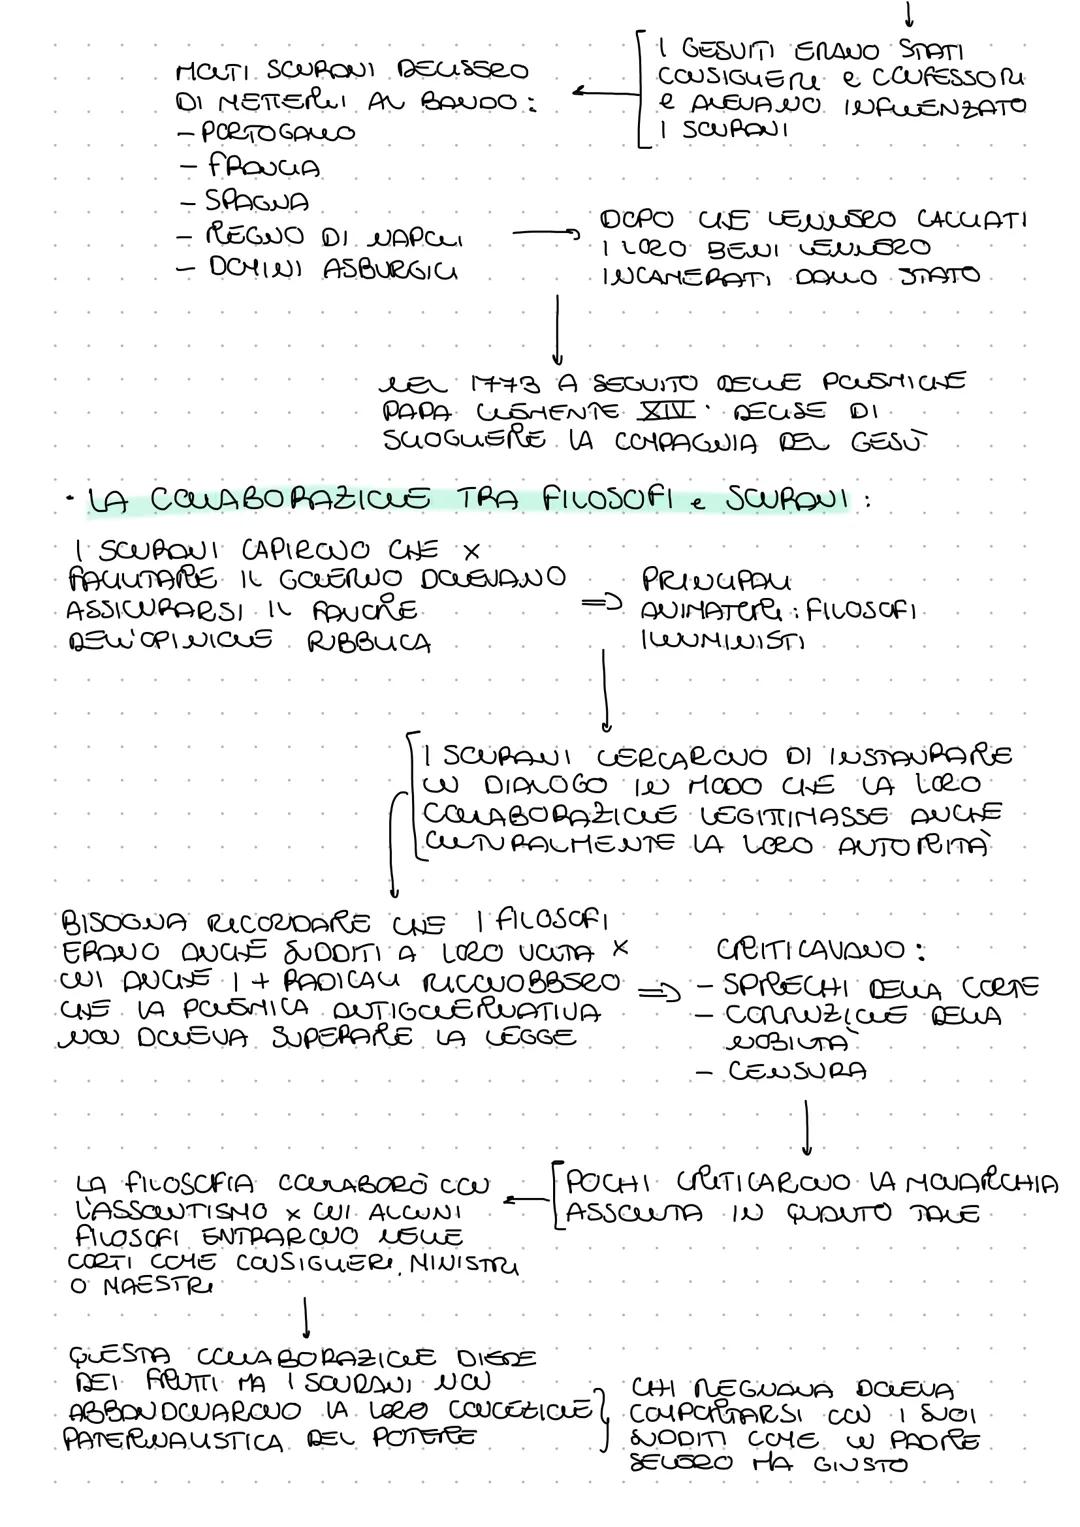 I GESUITI ERANO STATI
CONSIGLIERI e CONFESSORI
e AVEVANO INFLUENZATO
I SOVRANI
MOLTI SOVRANI DECISERO
DI METTERLI AL BANDO:
- PORTOGALLO
- FRANCIA
- SPAGNA
- REGNO DI NAPOLI
- DOMINI ASBURGICI
DOPO CHE VENNERO CACCIATI
I LORO BENI VENNERO
INCAMERATI DALLO STATO
NEL 1773 A SEGUITO DELLE POLEMICHE
PAPA CLEMENTE XIV DECISE DI
SCIOGLIERE LA COMPAGNIA DEL GESÙ
• LA COLLABORAZIONE TRA FILOSOFI e SOVRANI:
I SOVRANI CAPIRONO CHE x
FACILITARE IL GOVERNO DOVEVANO
ASSICURARSI IL FAVORE
DELL'OPINIONE PUBBLICA
=> PRINCIPALI
ANIMATORI: FILOSOFI
ILLUMINISTI
I SOVRANI CERCARONO DI INSTAURARE
UN DIALOGO IN MODO CHE LA LORO
COLLABORAZIONE LEGITTIMASSE ANCHE
CULTURALMENTE LA LORO AUTORITÀ
BISOGNA RICORDARE CHE I FILOSOFI
ERANO ANCHE SUDDITI A LORO VOLTA x
CUI ANCHE I + RADICALI RICONOBBERO
CHE LA POLEMICA ANTIGOVERNATIVA
NON DOVEVA SUPERARE LA LEGGE
=> CRITICAVANO:
- SPRECHI DELLA CORTE
- CORRUZIONE DELLA
NOBILTÀ
- CENSURA
POCHI CRITICARONO LA MONARCHIA
ASSOLUTA IN QUANTO TALE
LA FILOSOFIA COLLABORÒ CON
L'ASSOLUTISMO x CUI ALCUNI
FILOSOFI ENTRARONO NELLE
CORTI COME CONSIGLIERI, MINISTRI
O MAESTRI
QUESTA COLLABORAZIONE DIEDE
DEI FRUTTI MA I SOVRANI NON
ABBANDONARONO LA LORO CONCEZIONE
PATERNALISTICA DEL POTERE
CHI REGNAVA DOVEVA
COMPORTARSI CON I SUOI
SUDDITI COME UN PADRE
SEVERO MA GIUSTO